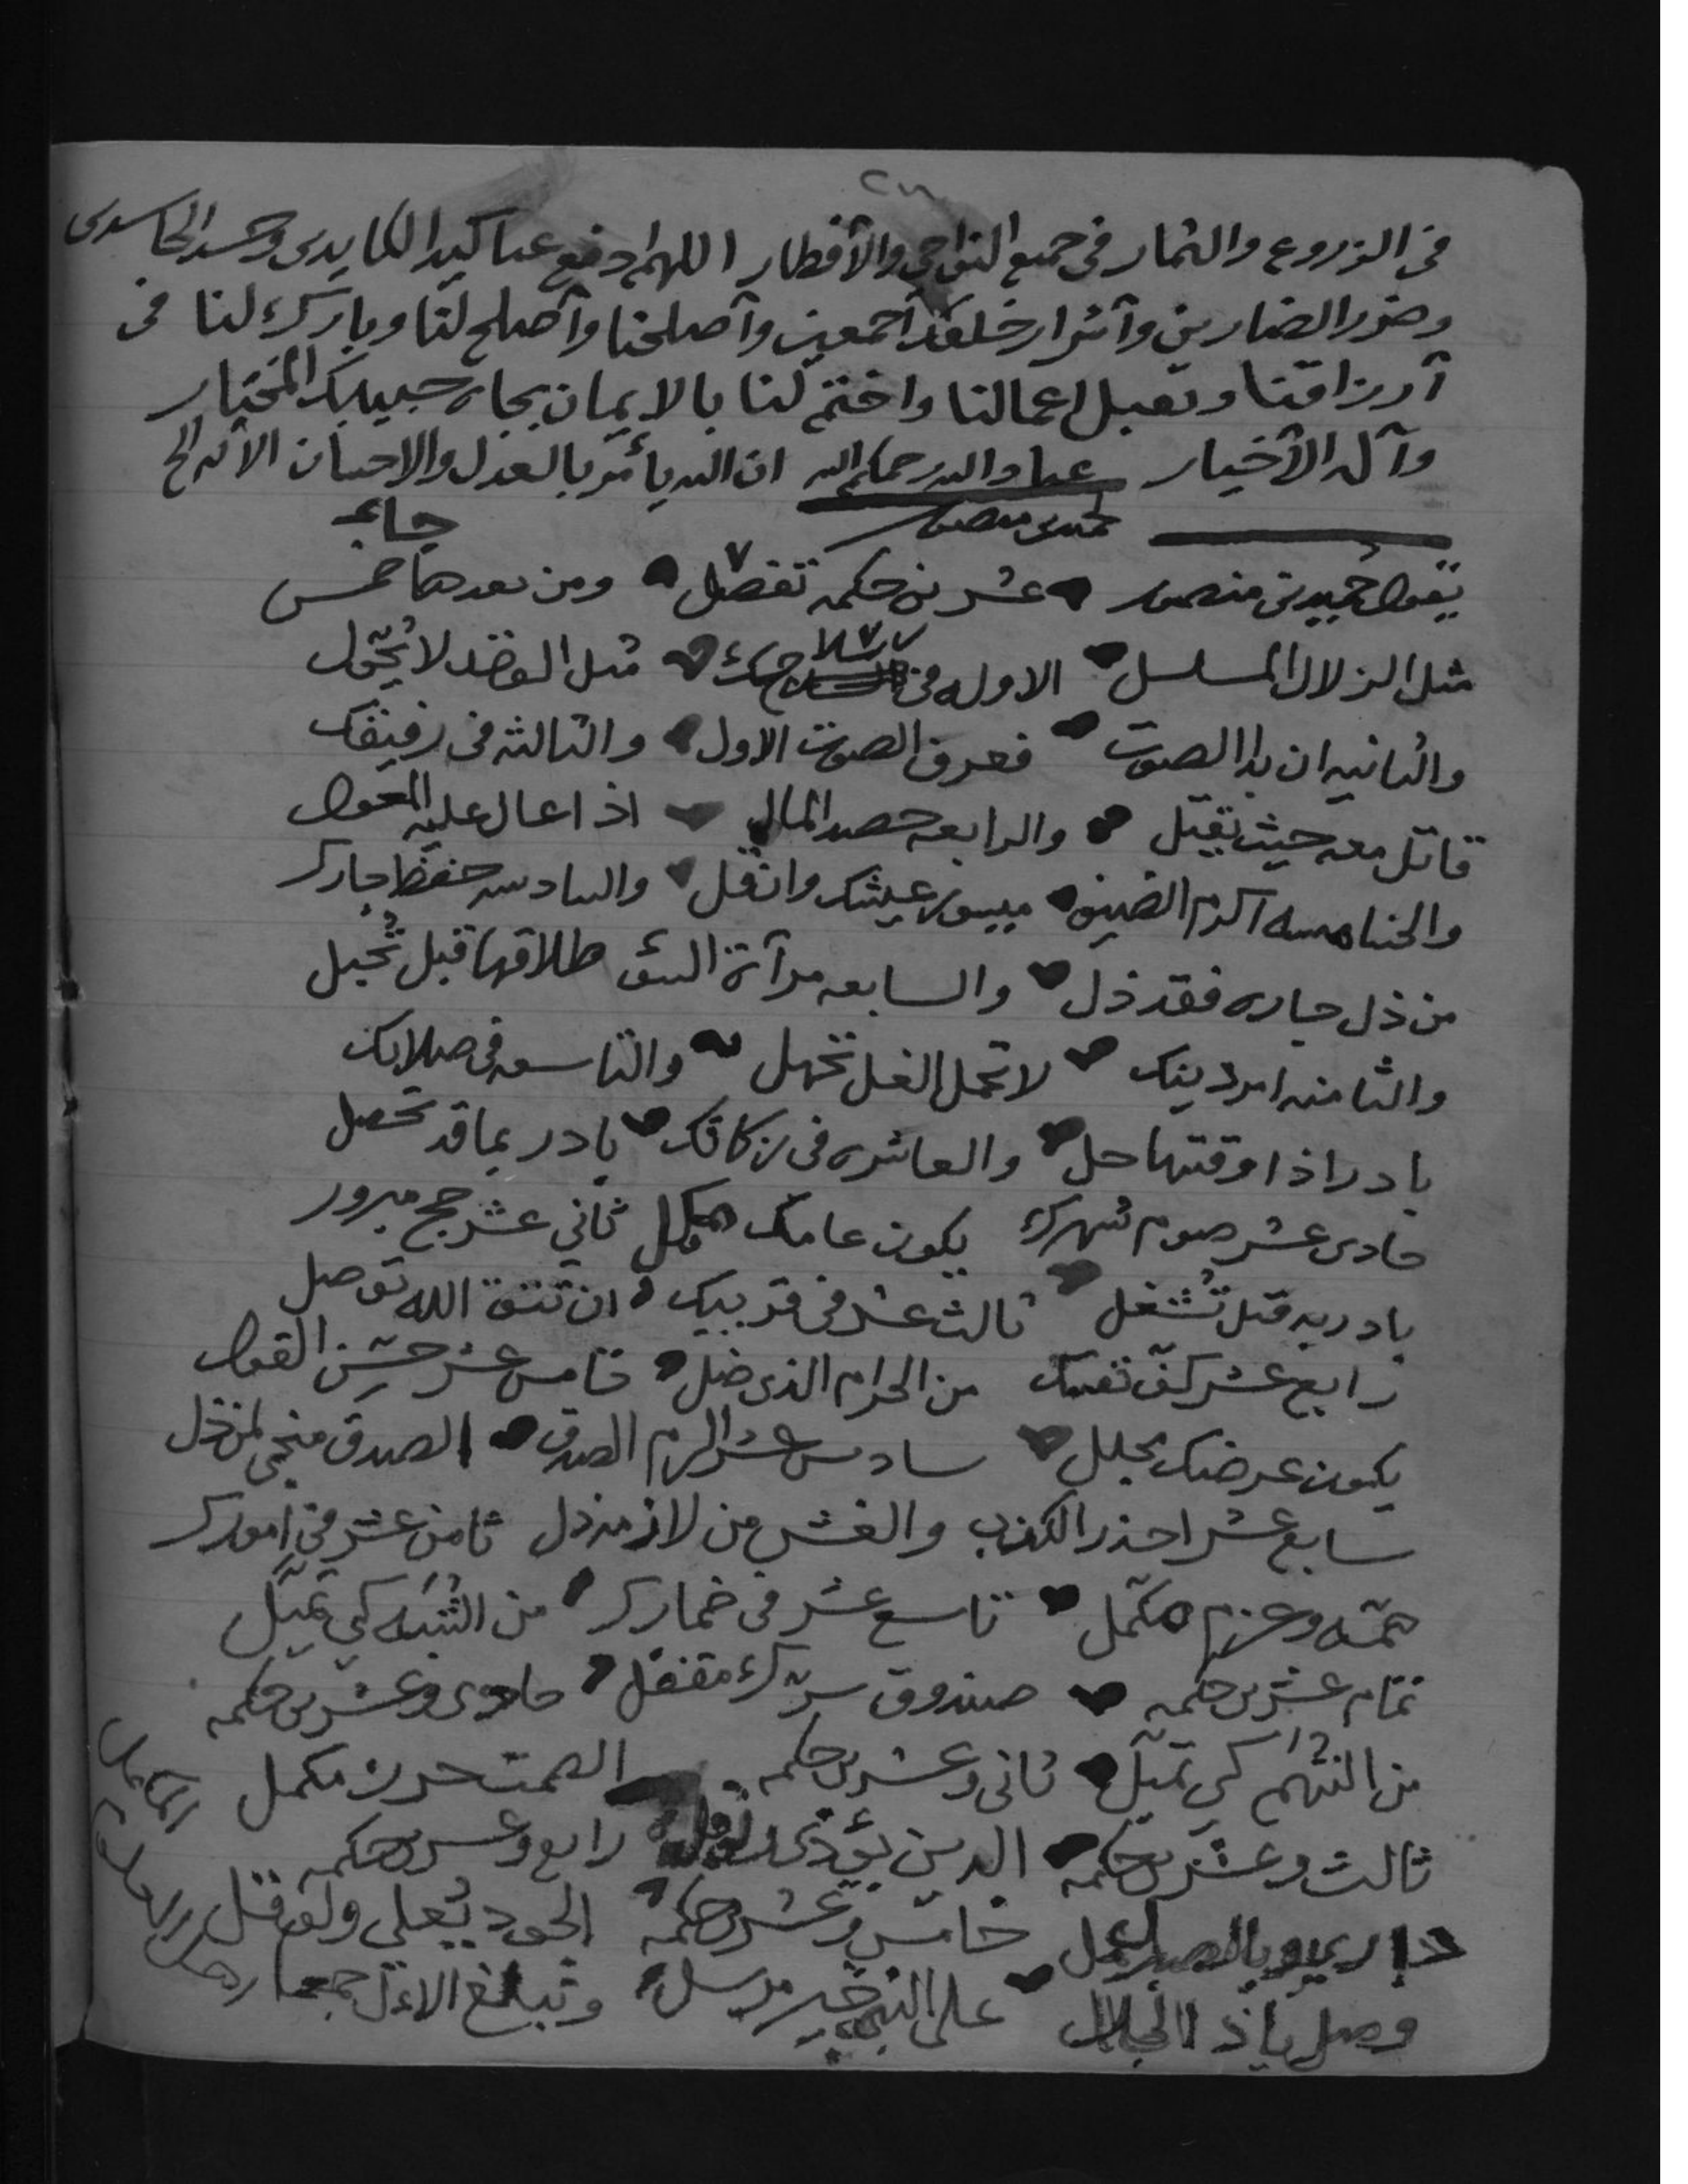 في الزروع والثمار في جميع النواحي والأقطار اللهم ادفع عنا كيد الكايدى وحسد الحاسدى
وضر الضارين وآشرار خلقك آجمعين وآصلحنا وآصلح لنا وبارك لنا في
آرزاقنا وتقبل اعمالنا واختم لنا بالايمان بجاه حبيبك المختار
وآله الآخيار عباد الله رحمكم الله ان الله يأمر بالعدل والاحسان الآيه الخ
منصور
يقول حميد بن منصور عشرين حكمه تفصل ومن بعدها خمس
مثل الزلال المسلسل الاوله في سلاحك مثل الوضد لا يحول
والثانيه ان بدا الصوت فعرف الصوت الاول والثالثه في رفيقك
قاتل معه حيث يقتل والرابعه حصد المال اذا عال عليه العول
والخامسه اكرم الضيف ميسور عيشك وانقل والسادسه حفظ جارك
من ذل جاره فقد ذل والسابعه مرآة السؤ طلاقها قبل تُحبل
والثامنه امر دينك لا تحمل الغل تجهل والتاسعه في صلاتك
بادر اذا وقتها حل والعاشره في زكاتك بادر بما قد تحصل
حادى عشر صوم شهرك يكون عامك مكمل ثاني عشر حج مبرور
بادر به قبل تُشغل ثالث عشر في قريبك ان تتق الله توصل
رابع عشر كف نفسك من الحرام الذي ضل خامس عشر حسن القول
يكون عرضك مجلل سادس عشر الزم الصدق الصدق منجي لمن ذل
سابع عشر احذر الكذب والغش من لازمه ذل ثامن عشر في امورك
همه وعزم مكمل تاسع عشر في خمارك من الشبه كي تميل
تمام عشرين حكمه صندوق سرك مقفل حادى وعشرين حكمه
من التهم كي تميل ثاني وعشرين حكمه الصمت حرز مكمل
ثالث وعشرين حكمه الدين يؤدى رابع وعشرين حكمه
خامس وعشرين حكمه الجود يُعلي ولو قل
وصل ياذا الجلال على النبي خير مرسل وتبلغ الال جمعا